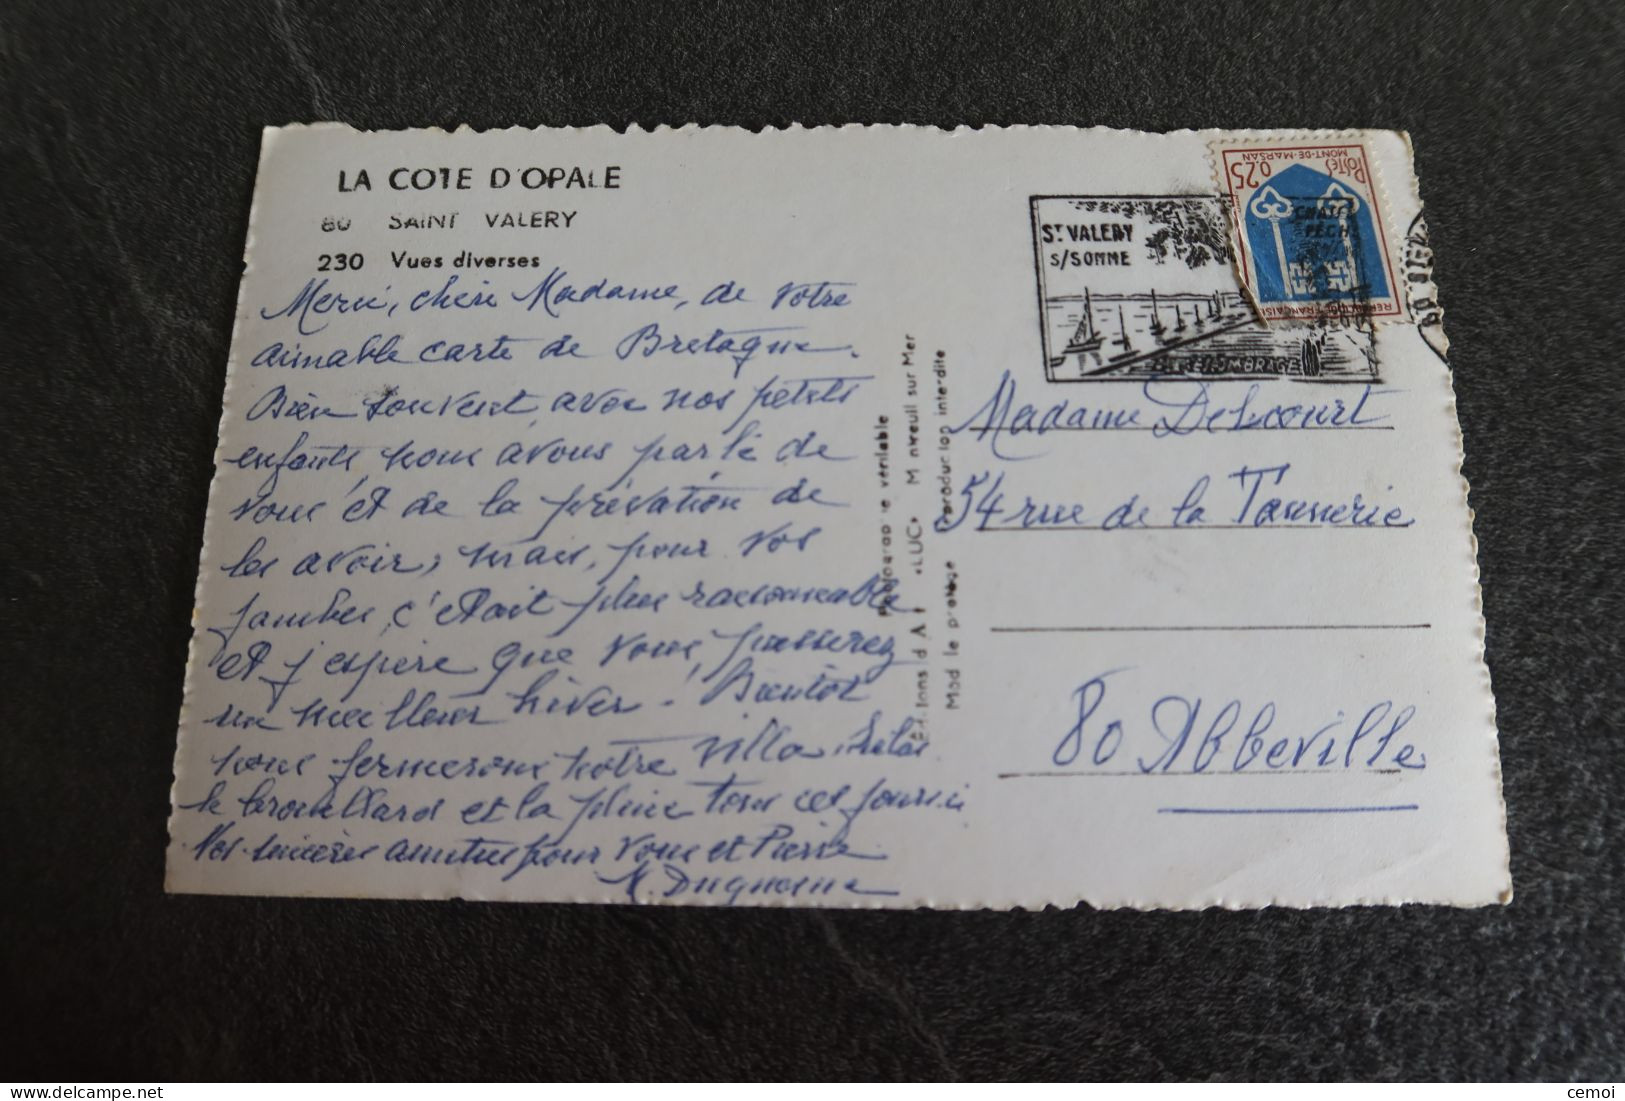 LA COTE D'OPALE
80 SAINT VALERY
230 Vues diverses
Merci, chère Madame, de votre
aimable carte de Bretagne.
Bien souvent, avec nos petits
enfants, nous avons parlé de
vous et de la privation de
les avoir, mais, pour vos
jambes, c'était plus raisonnable
et j'espère que vous passerez
un meilleur hiver. Bientôt
nous fermerons notre villa. hélas
le brouillard et la pluie tous ces jours-ci
Nos sincères amitiés pour vous et Pierre
M. Duquesne
Photographie véritable
Editions d'Art «LUC» Montreuil sur Mer
Modèle protégé Reproduction interdite
ST VALERY
S/SOMME
POSTES
MONT-DE-MARSAN
0.25
REPUBLIQUE FRANÇAISE
Madame Delcourt
54 rue de la Tannerie
80 Abbeville
cemoi